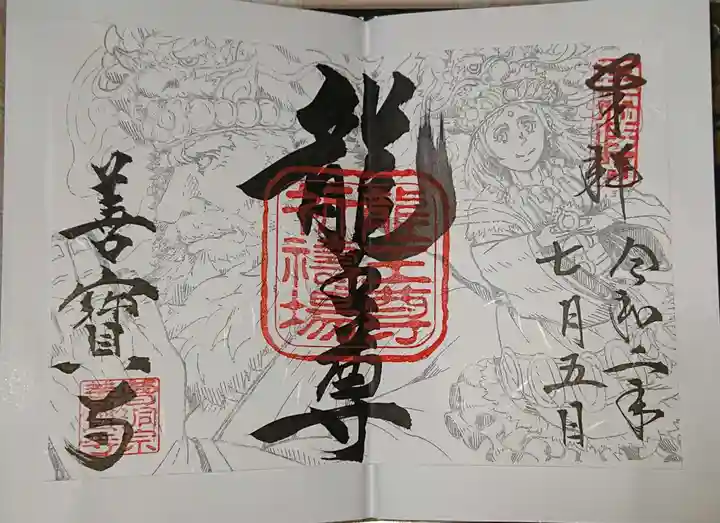 奉拝
令和二年
七月五日
龍王尊
龍王尊
祈祷場
善寳寺